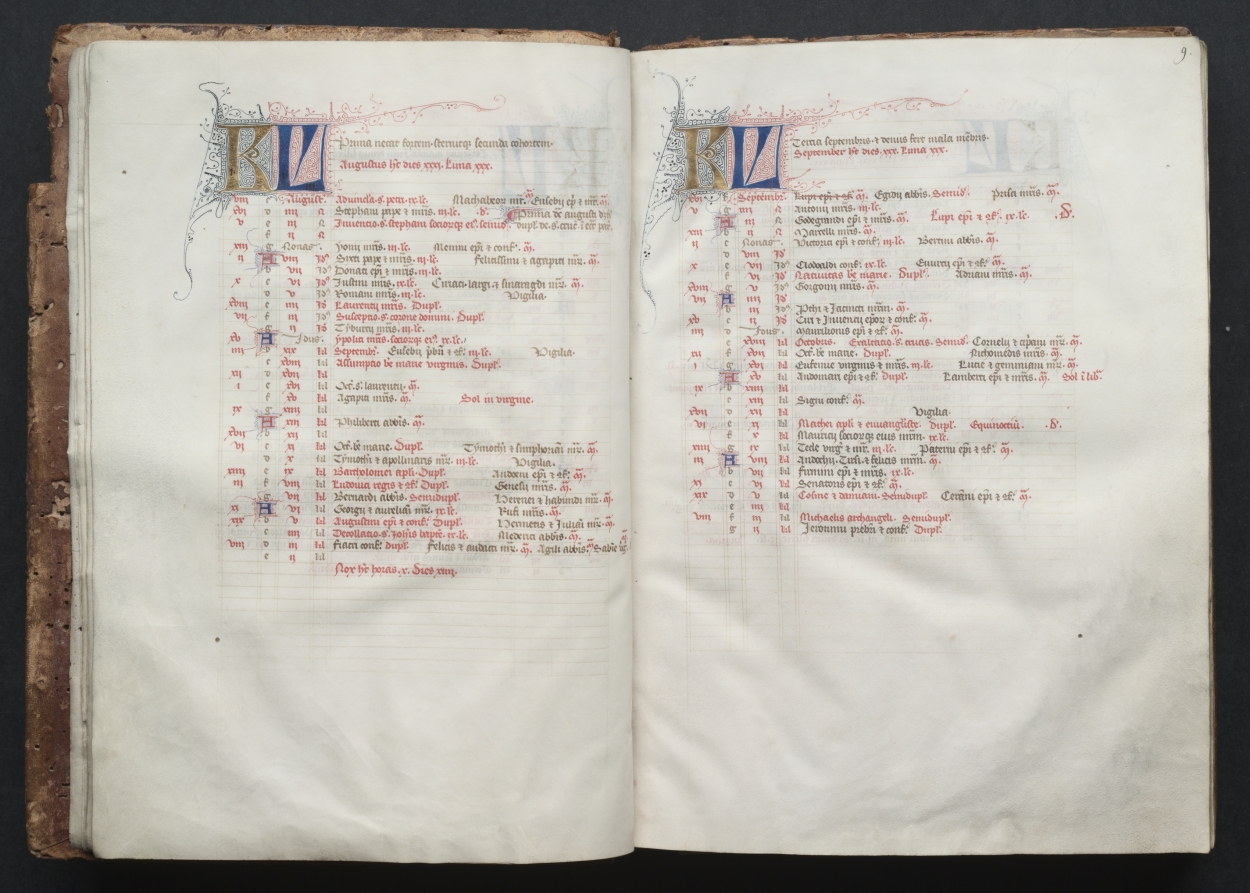 KL Prima necat fortem sternitque secunda cohortem.
Augustus hēt dies xxxi. Luna xxx.
viii c August. Aduincla s. petri. ix. lc. Machabeorum mr̄. Eusebij ep̄i & mr̄is.
xvi d iiii N Stephani pape & mr̄is. iii. lc. .d. Prima de augusti
v e iii N Inuentio s. stephani sociorūqz ei. semid.
f ii N
xiii g Nonas. Yonij mr̄is. iii. lc. Memij ep̄i & conf.
ii A viii Id Sixti pape & mr̄is. iii. lc. Felicissimi & agapiti mr̄.
b vii Id Donati ep̄i & mr̄is. iii. lc.
x c vi Id Iustini mr̄is. ix. lc. Ciriaci. largi. & smaragdi mr̄.
d v Id Romani mr̄is. iii. lc. Vigilia.
xviii e iiii Id Laurentij mr̄is. Dupl.
vii f iii Id Susceptio s. corone domini. Dupl.
g ii Id Tyburcij mr̄is. iii. lc.
xv A Idus. Ypoliti mr̄is. sociorūqz ei. ix. lc.
iiii b xix kl Septembr. Eusebij pb̄ri & conf. iii. lc. Vigilia.
c xviii kl Assumptio be marie virginis. Dupl.
xii d xvii kl
i e xvi kl Oct. s. laurentij.
f xv kl Agapiti mr̄is. Sol in virgine.
ix g xiiii kl
A xiii kl Philiberti abb̄is.
xvii b xii kl
vi c xi kl Oct. be marie. Dupl. Tymothei & simphoriani mr̄.
d x kl Tymothei & apollinaris mr̄. iii. lc. Vigilia.
xiiii e ix kl Bartholomei apli. Dupl. Audoeni ep̄i & conf.
iii f viii kl Ludouici regis & conf. Dupl. Genesij mr̄is.
g vii kl Bernardi abb̄is. Semidupl. Herenei & habundi mr̄.
xi A vi kl Georgij & aurelij mr̄. ix. lc. Rufi mr̄is.
xix b v kl Augustini ep̄i & conf. Dupl. Hermetis & Iuliani mr̄.
c iiii kl Decollatio s. Ioh̄is bapte. ix. lc. Mederici abb̄is.
viii d iii kl Fiacri conf. dupl. Felicis & audacti mr̄. Agili abb̄is. Sabine vg̅.
e ii kl
Nox hēt horas. x. Dies xiiii.
9.
KL Tercia septembris & denus fert mala mēbris.
September hēt dies. xxx. Luna xxx.
xvi f Septembr. Lupi ep̄i & conf. Egidij abb̄is. Semid. Prisci mr̄is.
v g iiii N Antonij mr̄is. iii. lc.
A iii N Godegrandi ep̄i & mr̄is. Lupi ep̄i & conf. ix. lc. .d.
xiii b ii N Marcelli mr̄is.
ii c Nonas. Victorini ep̄i & conf. iii. lc. Bertini abb̄is.
d viii Id
x e vii Id Clodoaldi conf. ix. lc. Euurcij ep̄i & conf.
f vi Id Natiuitas be marie. Dupl. Adriani mr̄is.
xviii g v Id Gorgonij mr̄is.
vii A iiii Id
b iii Id Pthi & Iacincti mr̄m.
xv c ii Id Ciri & Inuencij ep̄or & conf.
iiii d Idus. Maurilionis ep̄i & conf.
e xviii kl Octobris. Exaltatio. s. crucis. Semid. Cornelij & cipani mr̄.
xii f xvii kl Oct. be marie. Dupl. Nichomedis mr̄is.
i g xvi kl Eufemie virginis & mr̄is. iii. lc. Lucie & geminiani mr̄.
A xv kl Audomari ep̄i & conf. Dupl. Lamberti ep̄i & mr̄is. Sol ī lib̄.
ix b xiiii kl
c xiii kl Signi conf.
xvii d xii kl Vigilia.
vi e xi kl Mathei apli & euuangliste. Dupl. Equinoctiū. .d.
f x kl Mauricij sociorūqz eius mr̄m. ix. lc.
xiiii g ix kl Tecle virg̅ & mr̄. iii. lc. Paterni ep̄i & conf.
iii A viii kl Andochij. Tirsi. & felicis mr̄m.
b vii kl Firmini ep̄i & mr̄is. ix. lc.
xi c vi kl Senatoris ep̄i & conf.
xix d v kl Cosme & damiani. Semidupl. Cerani ep̄i & conf.
e iiii kl
viii f iii kl Michaelis archangeli. Semidupl.
g ii kl Ieronimi presb̄ri & conf. Dupl.